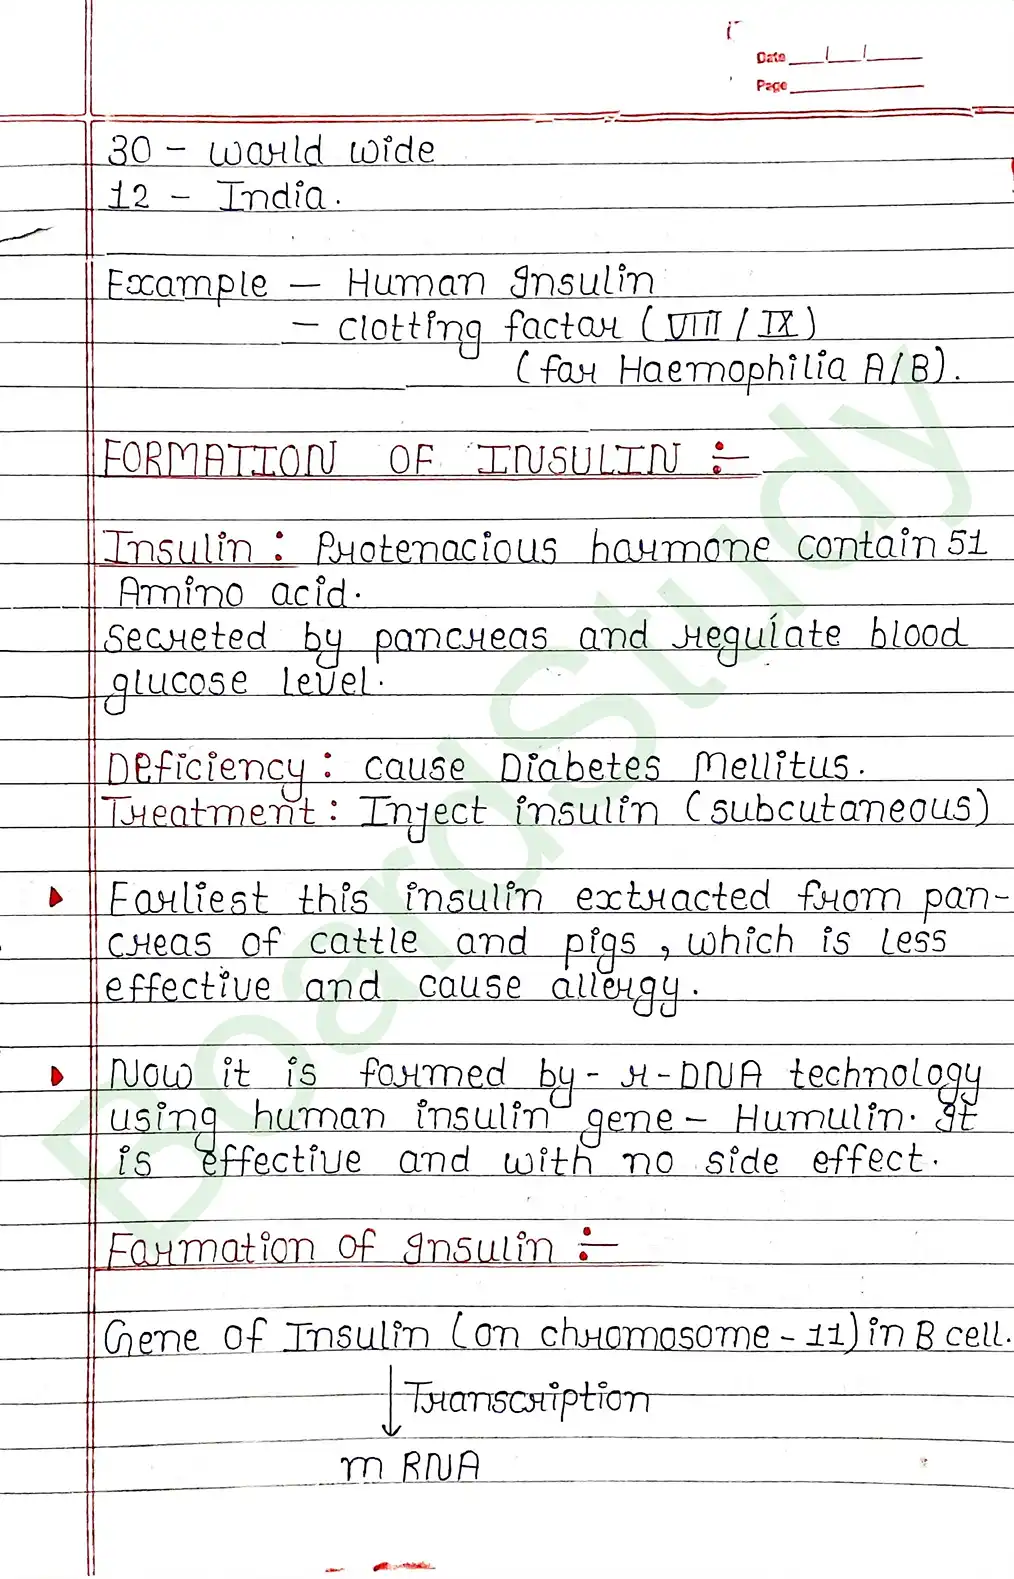 Date
Page
30 - world wide
12 - India.
Example - Human Insulin
- Clotting factor (VIII / IX)
(for Haemophilia A/B).
FORMATION OF INSULIN :-
Insulin : Protenacious hormone contain 51
Amino acid.
Secreted by pancreas and regulate blood
glucose level.
Deficiency : cause Diabetes Mellitus.
Treatment : Inject insulin (subcutaneous)
Earliest this insulin extracted from pan-
creas of cattle and pigs, which is less
effective and cause allergy.
Now it is formed by - r-DNA technology
using human insulin gene - Humulin. It
is effective and with no side effect.
Formation of Insulin :-
Gene of Insulin (on chromosome - 11) in B cell.
Transcription
m RNA
BoardStudy